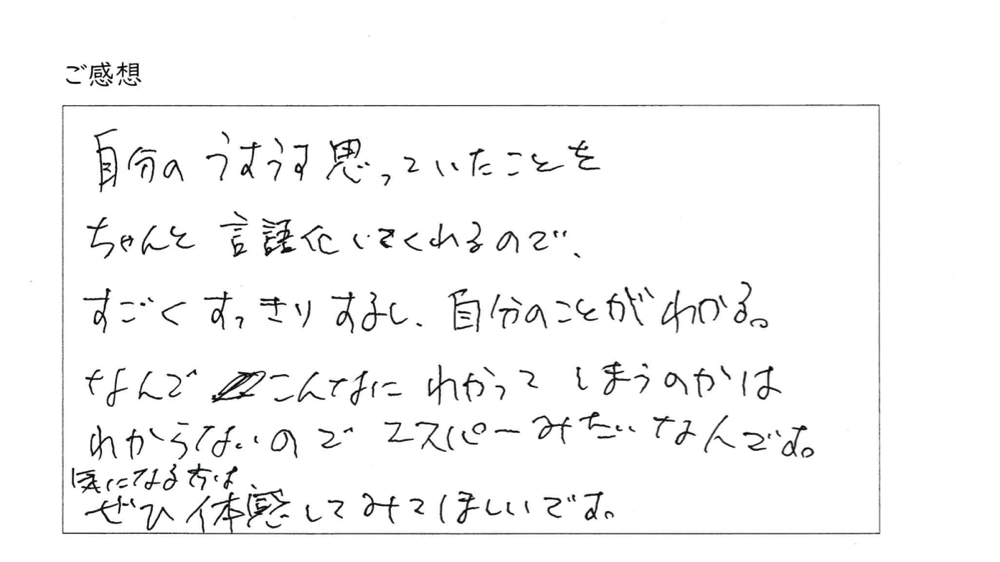 ご感想
自分のうすうす思っていたことを
ちゃんと言語化してくれるので、
すごくすっきりするし、自分のことがわかる。
なんでこんなにわかってしまうのかは
わからないのでエスパーみたいなんです。
気になる方は、
ぜひ体感してみてほしいです。